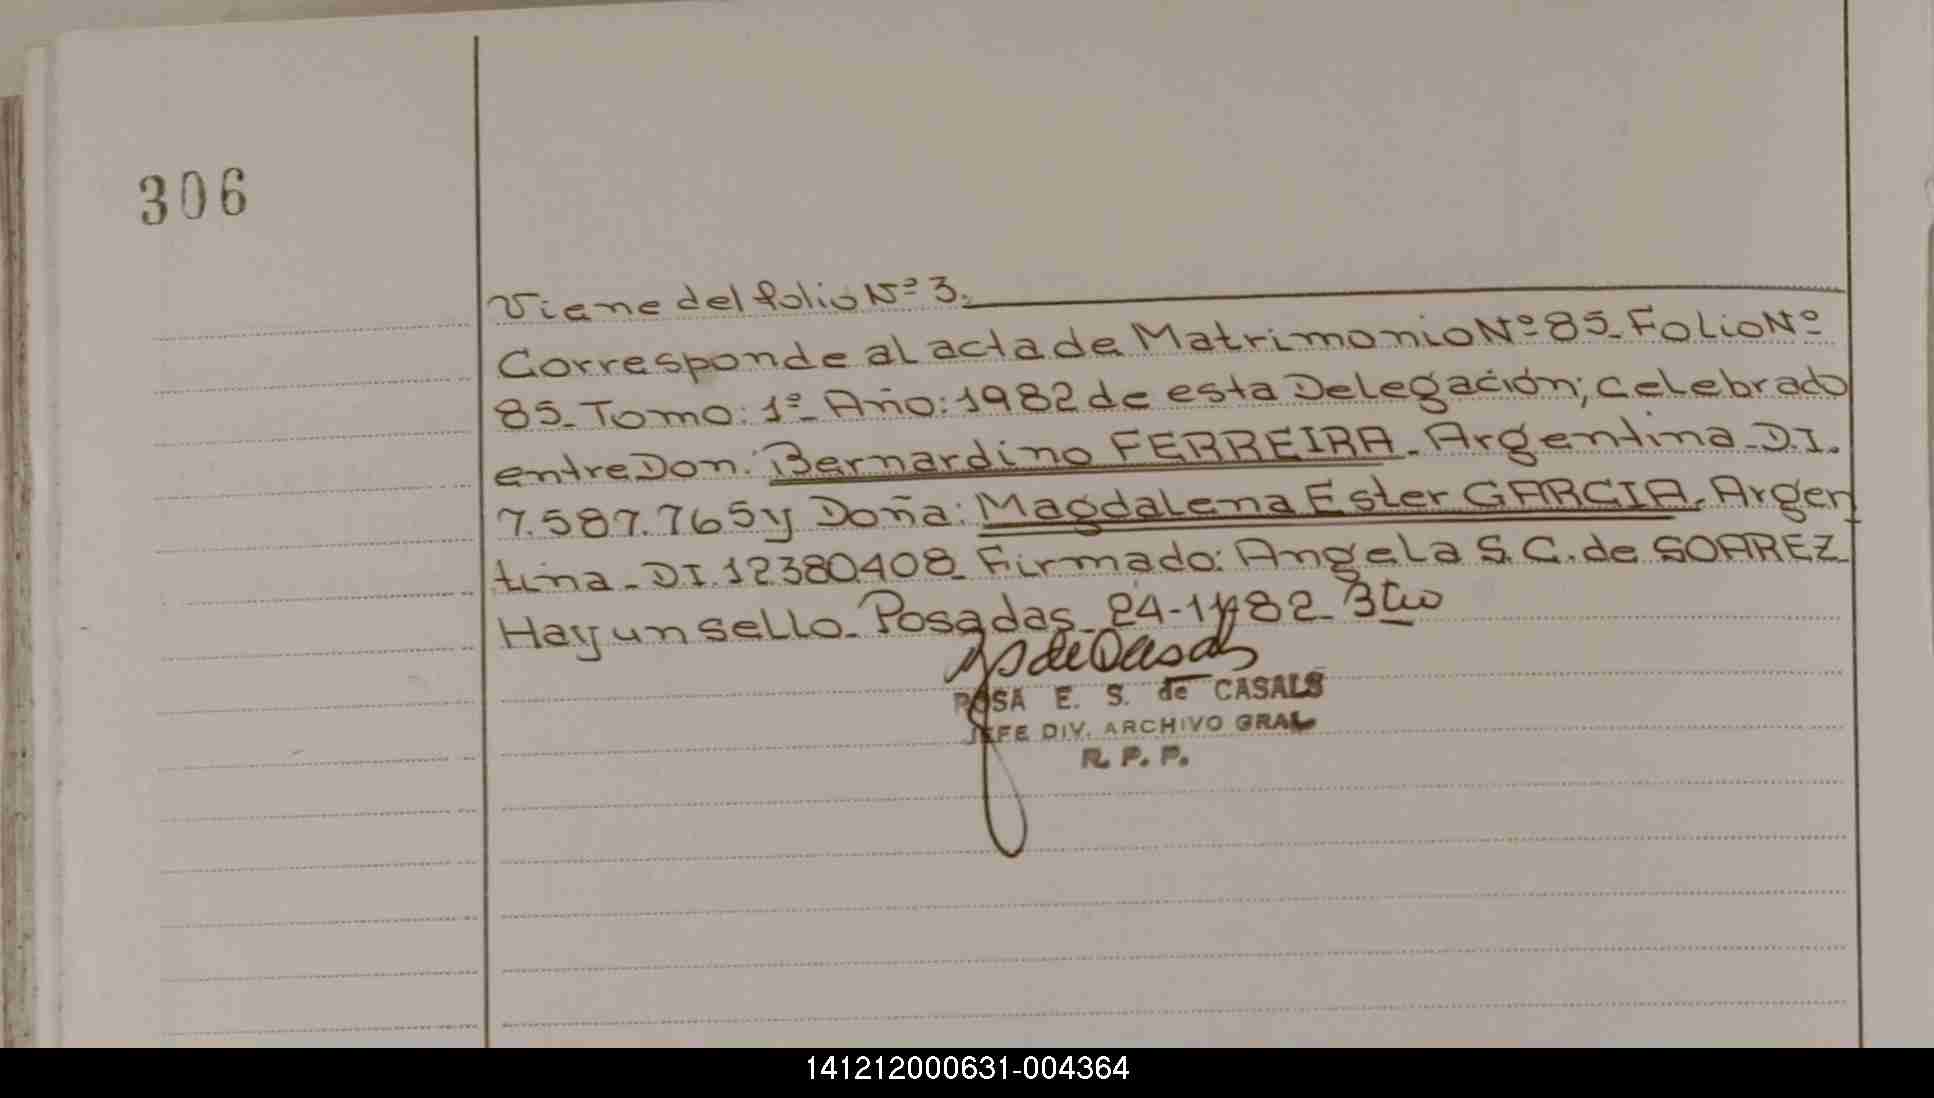 306
Viene del folio Nº 3.
Corresponde al acta de Matrimonio Nº 85_ Folio Nº
85_ Tomo: 1º_ Año: 1982 de esta Delegación; celebrado
entre Don: Bernardino FERREIRA_ Argentina_ D.I.
7.587.765 y Doña: Magdalena Ester GARCIA, Argen
tina_ DI. 12380408_ Firmado: Angela S. C. de SOAREZ
Hay un sello_ Posadas_ 24-11-82_
ROSA E. S. de CASALS
JEFE DIV. ARCHIVO GRAL
R. P. P.
141212000631-004364